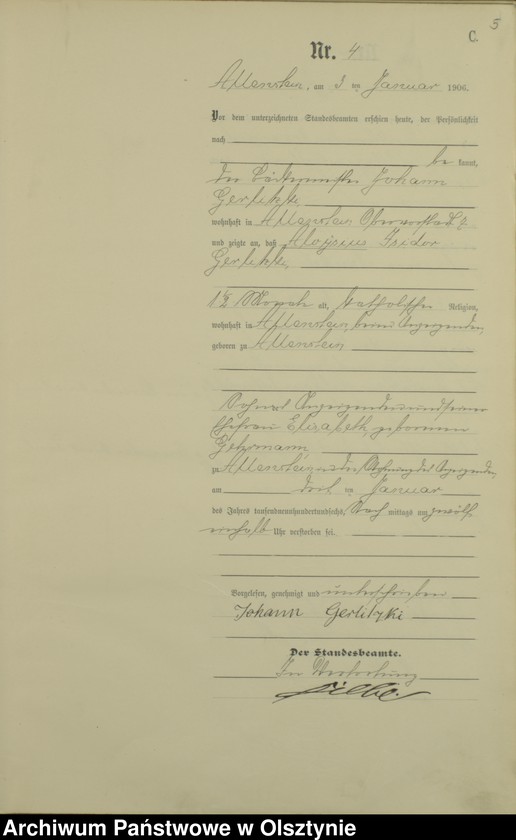 5
C.
Nr. 4
Allenstein, am 3 ten Januar 1906.
Vor dem unterzeichneten Standesbeamten erschien heute, der Persönlichkeit
nach
be kannt,
der Johann
wohnhaft in Allenstein
und zeigte an, daß Aloysius Isidor
1½ Monat alt, katholischer Religion,
wohnhaft in Allenstein, beim Anzeigenden,
geboren zu Allenstein
Sohn des Anzeigenden und seiner
Ehefrau Elisabeth geborenen
zu Allenstein, in der Wohnung des Anzeigenden,
am ten Januar
des Jahres tausendneunhundertundsechs, Nach mittags um zwölf
einhalb Uhr verstorben sei.
Vorgelesen, genehmigt und unterschrieben
Johann Gerlitzki
Der Standesbeamte.
In Vertretung
Archiwum Państwowe w Olsztynie